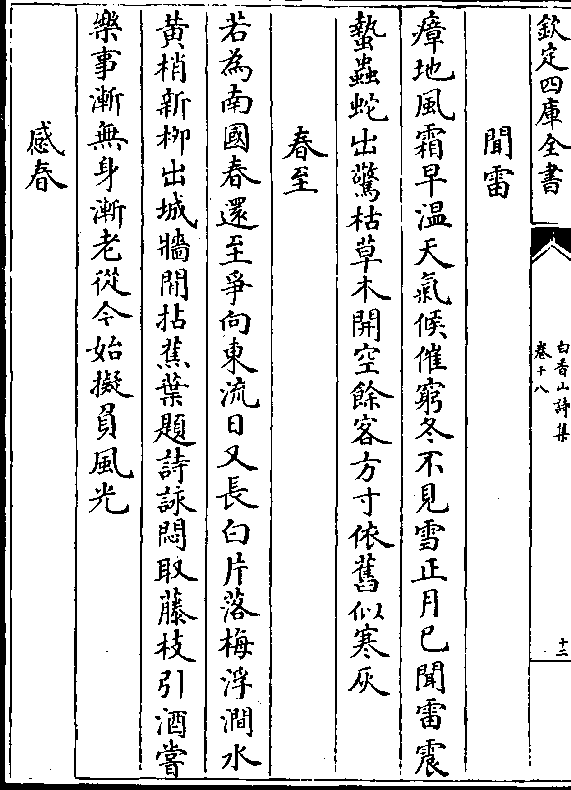 欽定四庫全書
白香山詩集
卷十八
十二
聞雷
瘴地風霜早温天氣候催窮冬不見雪正月已聞雷震
蟄蟲蛇出驚枯草木開空餘客方寸依舊似寒灰
春至
若為南國春還至爭向東流日又長白片落梅浮澗水
黃梢新栁出城牆閒拈蕉葉題詩詠悶取藤枝引酒嘗
樂事漸無身漸老從今始擬負風光
感春